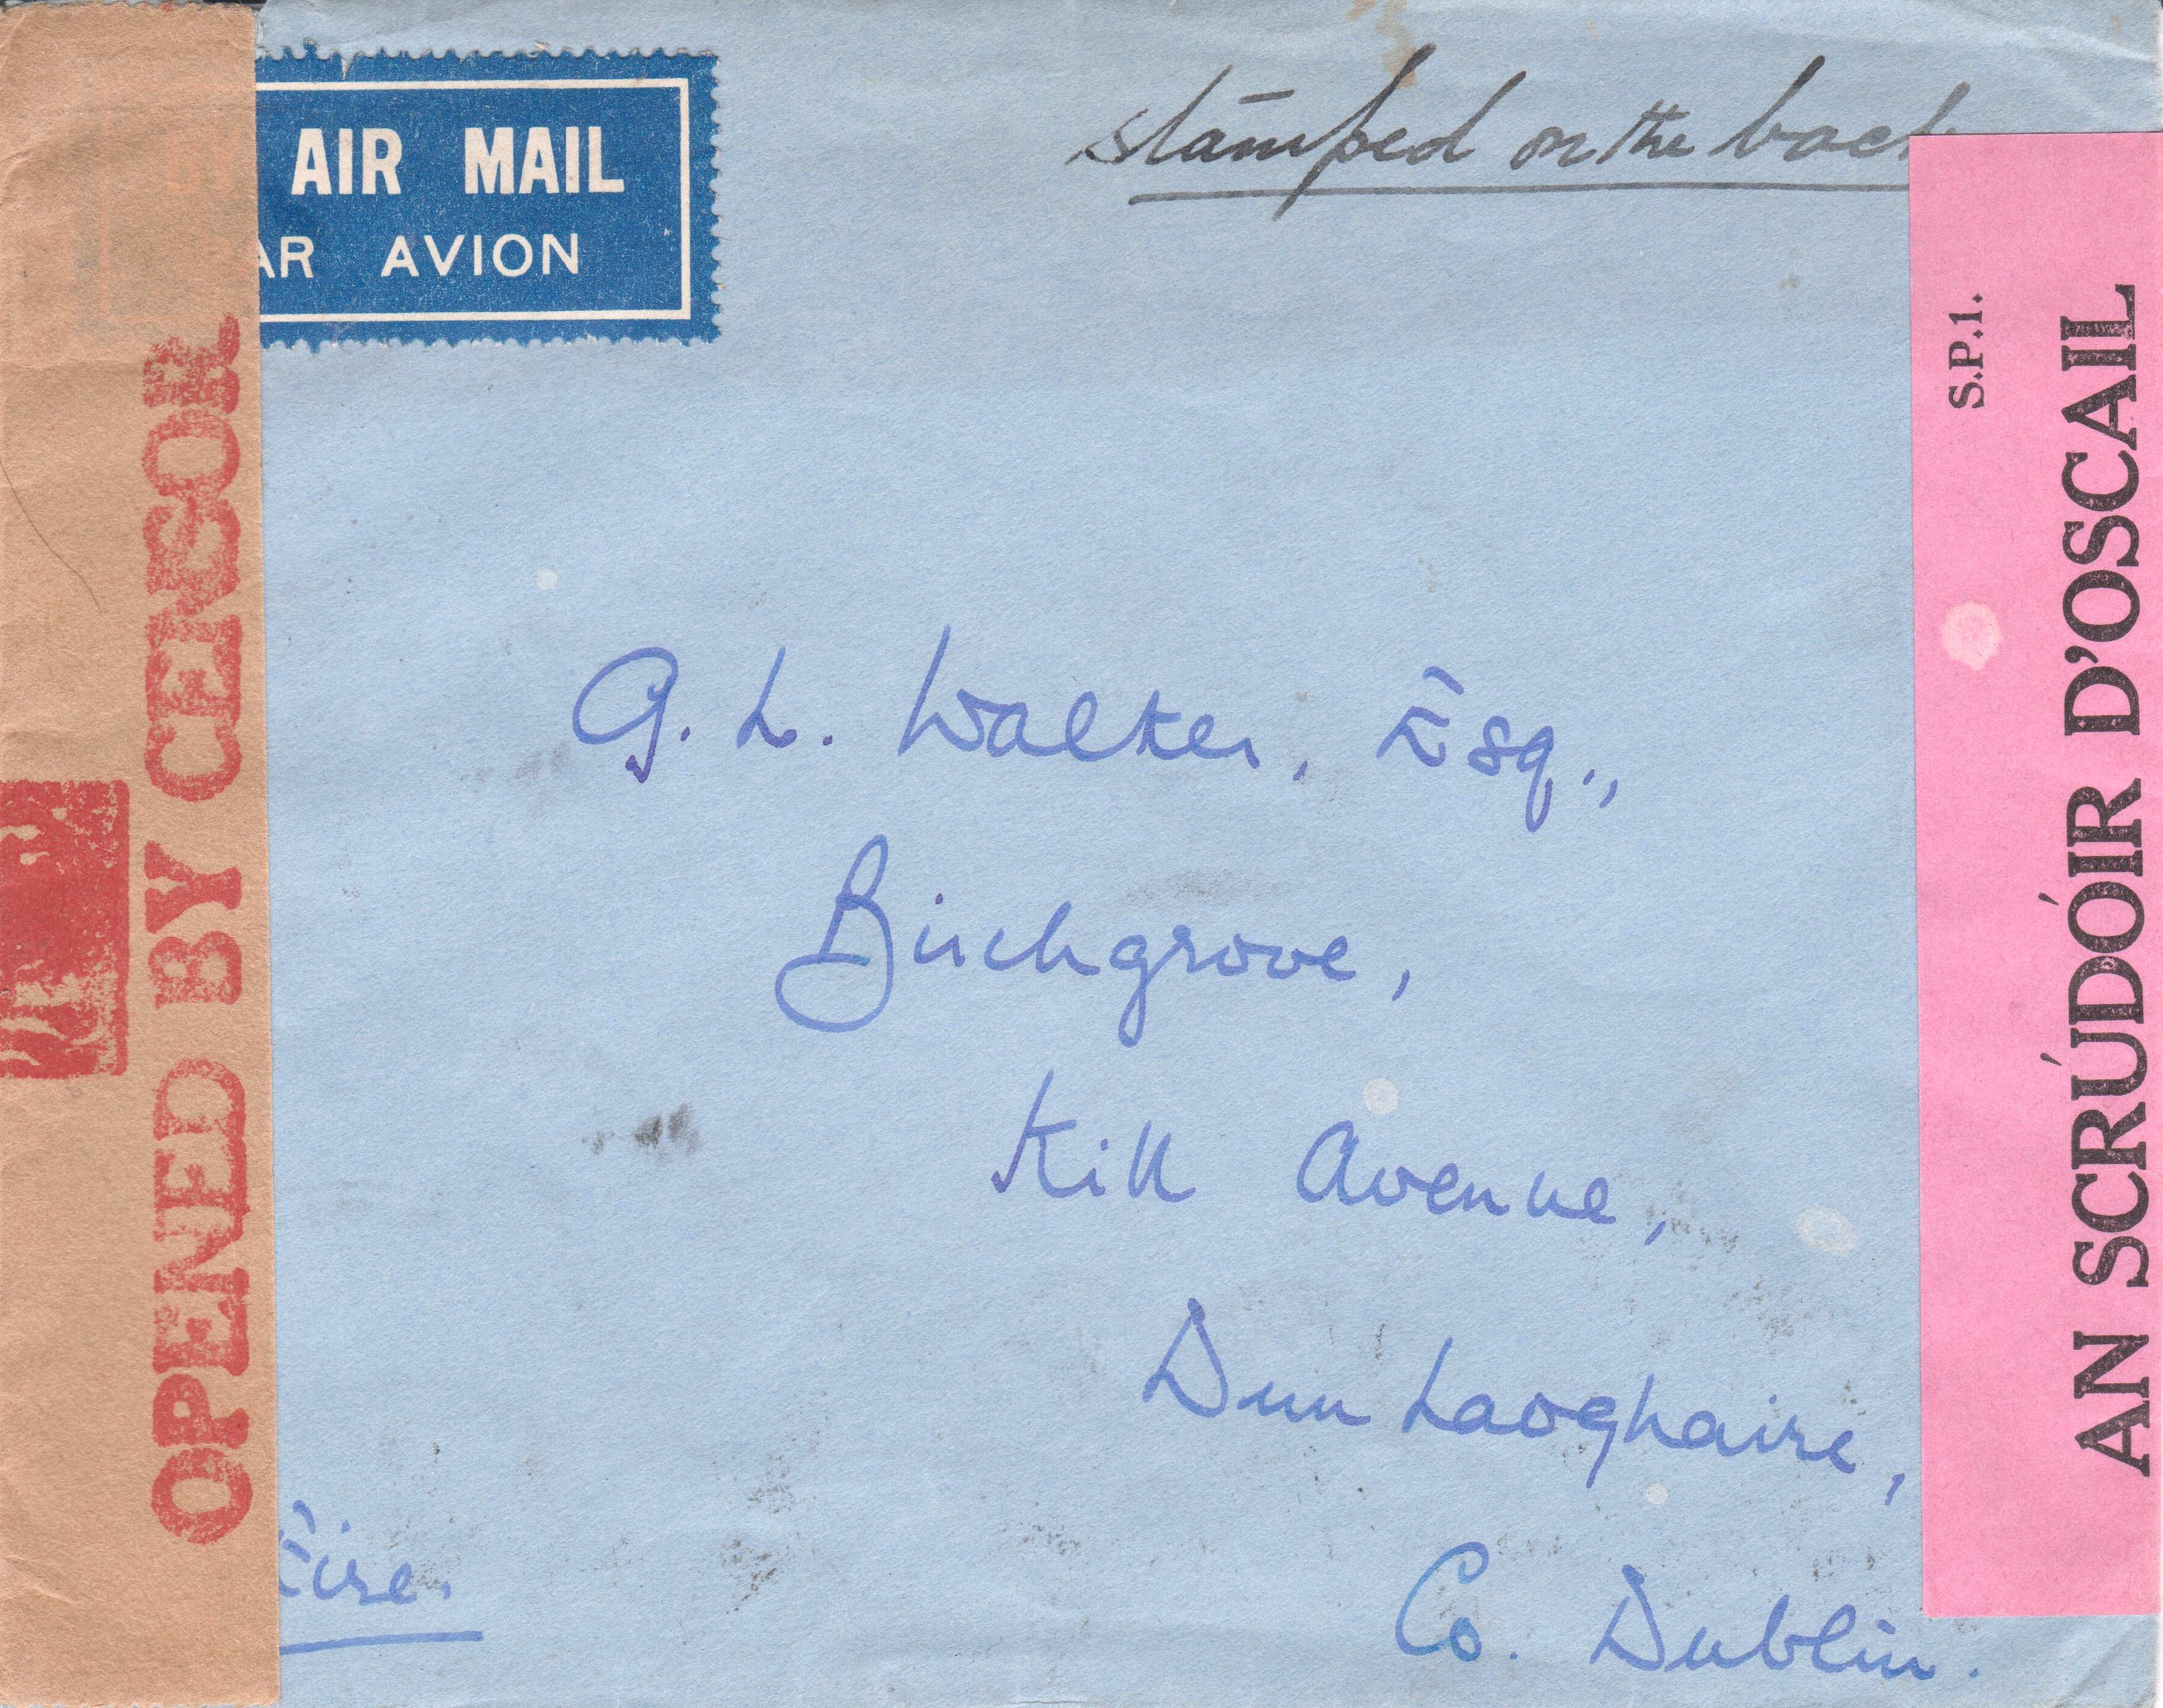 AIR MAIL
AR AVION
stamped on the back
G. L. Walker, Esq.,
Birchgrove,
Kill Avenue,
Dun Laoghaire,
Co. Dublin.
Éire.
OPENED BY CENSOR
S.P.1.
AN SCRÚDÓIR D'OSCAIL